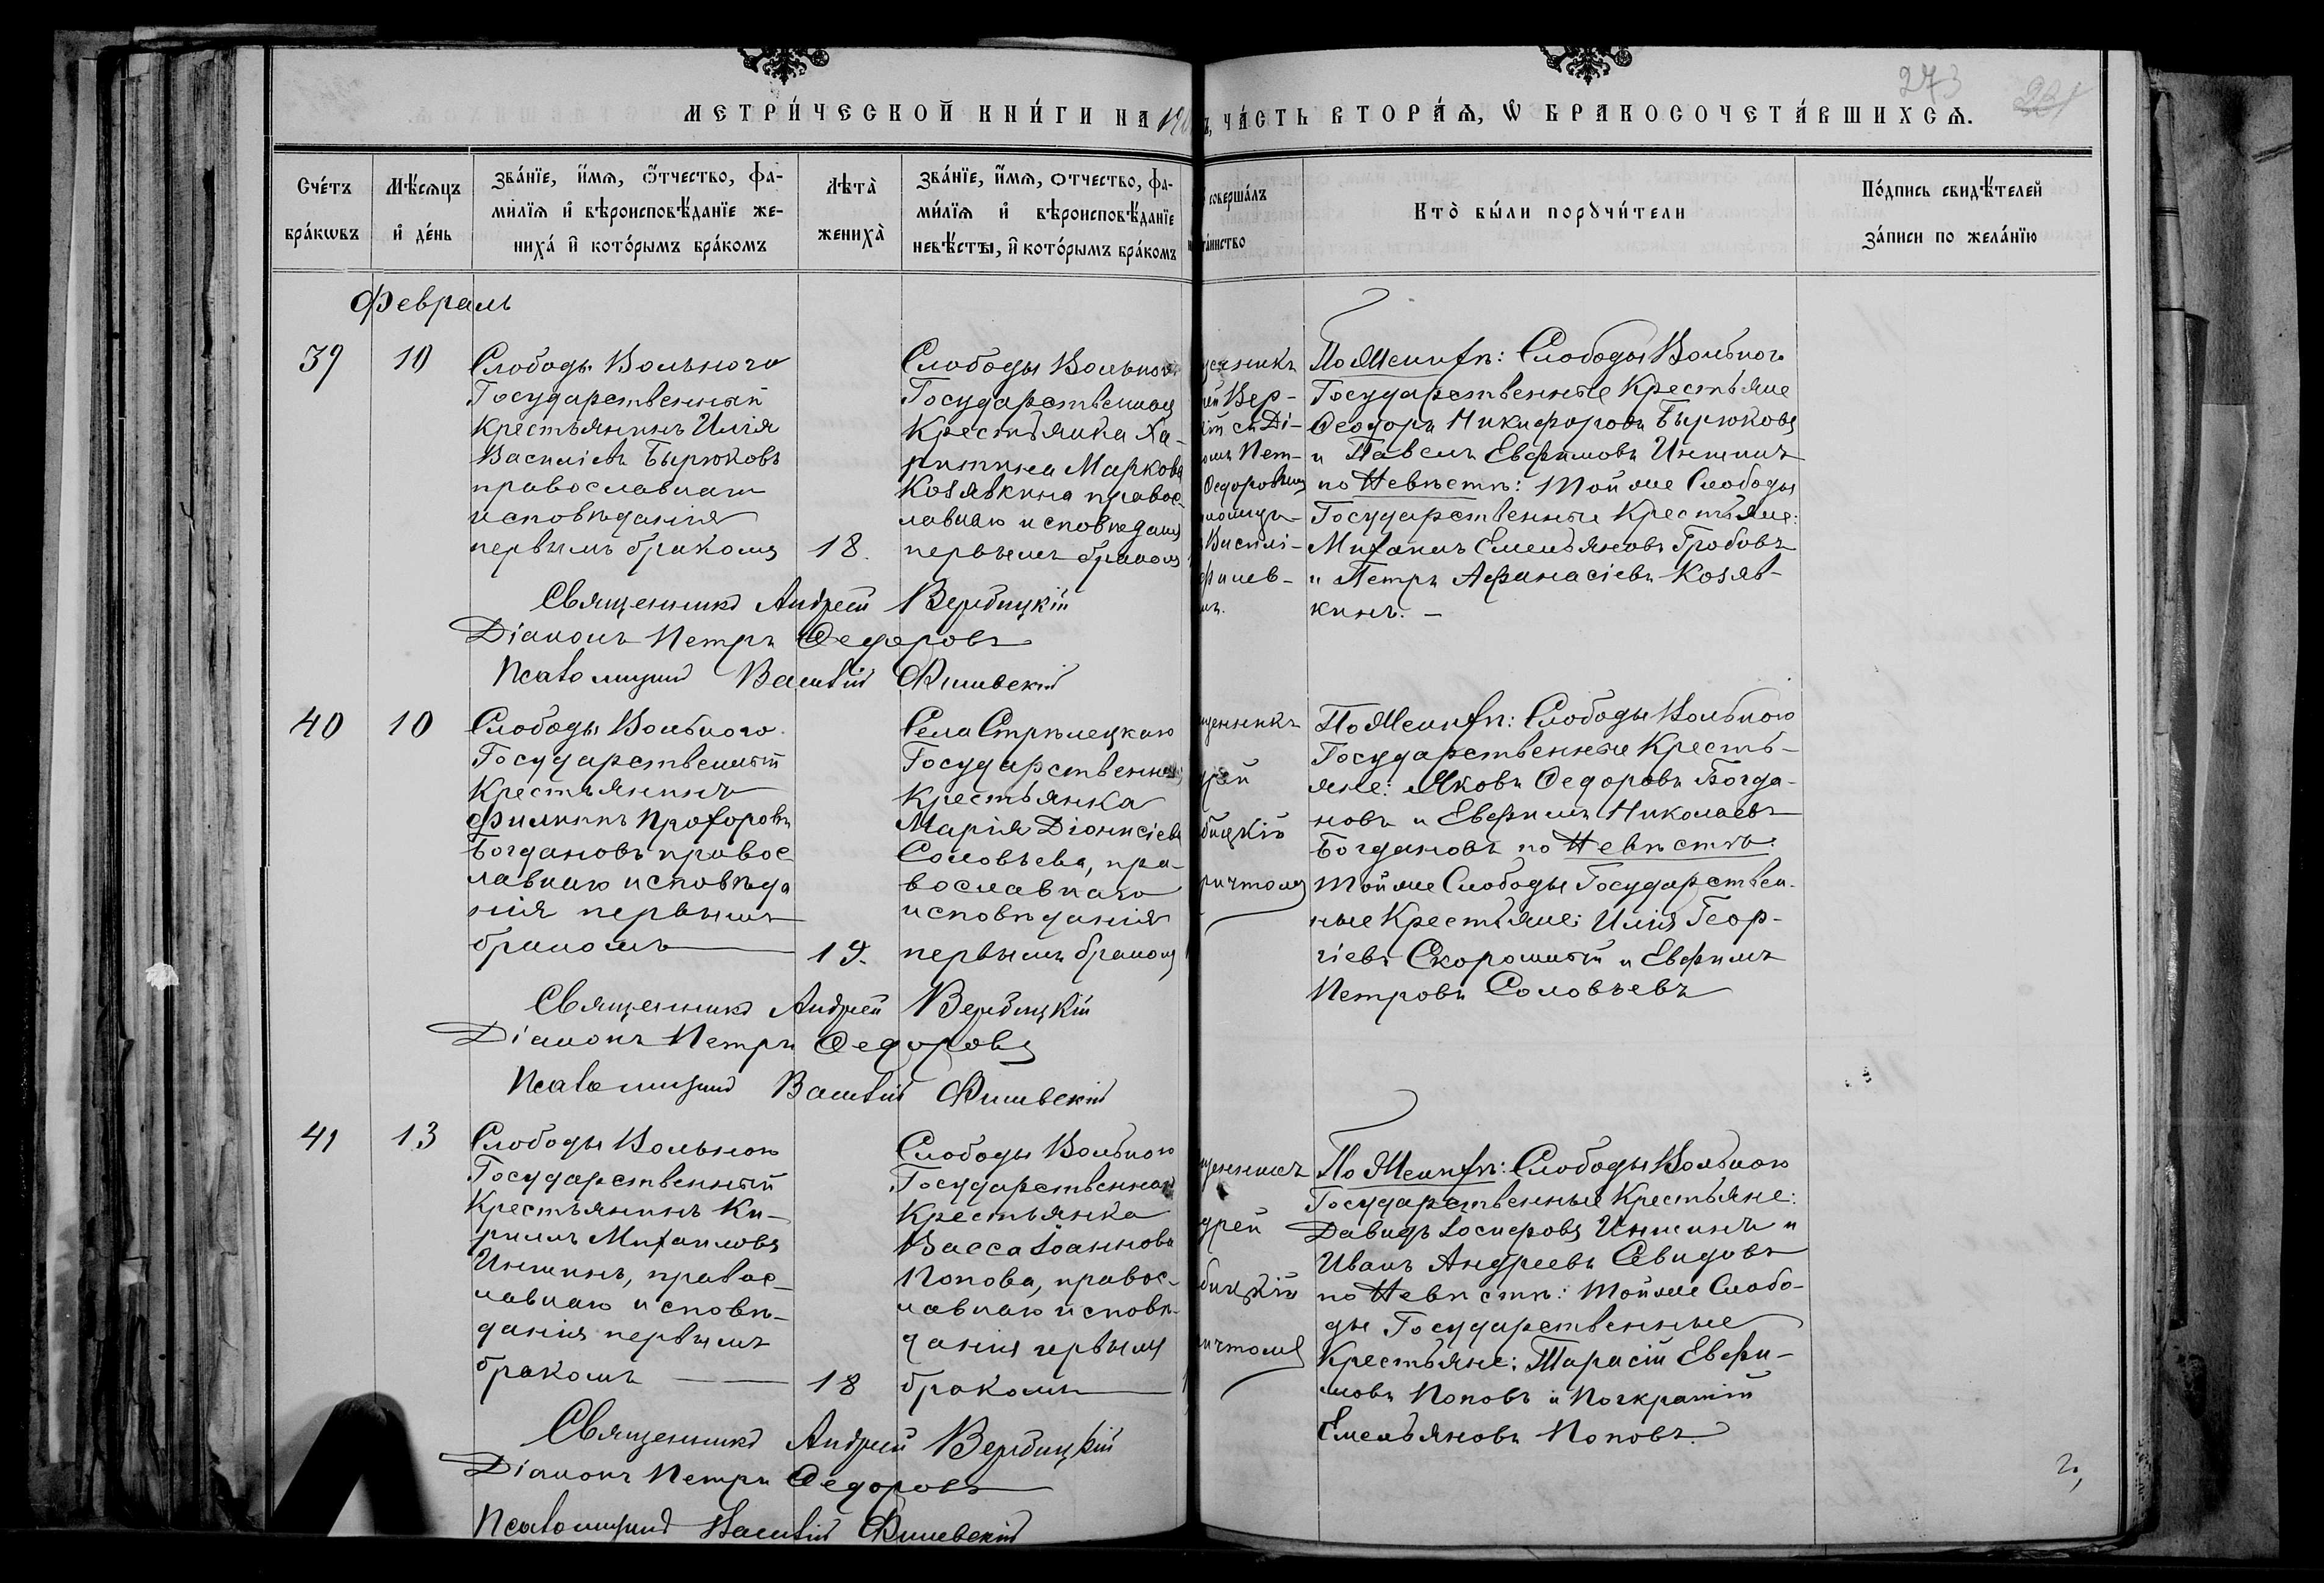 273
МЕТРИ́ЧЕСКОЙ КНИ́ГИ НА
ЧА́СТЬ ВТОРА́Ѧ, Ѡ БРАКОСОЧЕТА́ВШИХСѦ.
Сче́тъ
бра́кѡвъ
Мѣ́сѧцъ
и҆ де́нь
Зва́нїе, и҆́мѧ, ѻ҆́тчество, фа-
ми́лїѧ и҆ вѣроисповѣ́данїе же-
ниха́ и҆ кото́рымъ бра́комъ
Лѣта̀
жениха̀
Зва́нїе, и҆́мѧ, отчество, фа-
ми́лїѧ и҆ вѣроисповѣ́данїе
невѣ́сты, и҆ кото́рымъ бра́комъ
соверша́лъ
та́инство
Кто̀ бы́ли порꙋчи́тели
По́дпись свидѣ́телей
за́писи по жела́нїю
Февраль
39
10
Слободы Вольного
Государственный
Крестьянинъ Илія
Василіевъ Бырюковъ
православнаго
исповѣданія
первымъ бракомъ
18.
Слободы Вольного
Государственная
Крестьянка Ха-
ритина Маркова
Козявкина правос-
лавнаго исповѣданія
первымъ бракомъ
щенникъ
ей Вер-
кій съ Ді-
омъ Пет-
Ѳедоровымъ
аломщи-
Василі-
фиіев-
мъ.
По Женихѣ: Слободы Вольного
Государственные Крестьяне
Ѳеодоръ Никифоровъ Бырюковъ
и Павелъ Евфимовъ Иншинъ
по Невѣстѣ: той же Слободы
Государственные Крестьяне:
Михаилъ Емельяновъ Гробовъ
и Петръ Афанасіевъ Козяв-
кинъ. —
Священникъ Андрей Вербицкій
Діаконъ Петръ Ѳедоровъ
Псаломщикъ Василій
40
10
Слободы Вольного
Государственный
Крестьянинъ
Филиппъ Прохоровъ
Богдановъ правос-
лавнаго исповѣда
нія первымъ
бракомъ
19.
Села Стрѣлецкаго
Государственная
Крестьянка
Марія Діонисіева
Соловьева, пра-
вославнаго
исповѣданія
первымъ бракомъ
щенникъ
дрей
бицкій
ричтомъ
По Женихѣ: Слободы Вольного
Государственные Кресть-
яне: Яковъ Ѳедоровъ Богда-
новъ и Евфимъ Николаевъ
Богдановъ по Невѣстѣ:
той же Слободы Государствен-
ные Крестьяне: Илія Геор-
гіевъ Скорошный и Евфимъ
Петровъ Соловьевъ
Священникъ Андрей Вербицкій
Діаконъ Петръ Ѳедоровъ
Псаломщикъ Василій
41
13
Слободы Вольного
Государственный
Крестьянинъ Ки-
риллъ Михаиловъ
Иншинъ, правос-
лавнаго исповѣ-
данія первымъ
бракомъ
18
Слободы Вольного
Государственная
Крестьянка
Васса Іоаннова
Попова, правос-
лавнаго исповѣ-
данія первымъ
бракомъ
щенникъ
дрей
бицкій
ичтомъ
По Женихѣ: Слободы Вольного
Государственные Крестьяне:
Давидъ Іосифовъ Иншинъ и
Иванъ Андреевъ Свидовъ
по Невѣстѣ: той же Слобо-
ды Государственные
Крестьяне: Тарасій Евфи-
мовъ Поповъ и Панкратій
Емельяновъ Поповъ.
Священникъ Андрей Вербицкій
Діаконъ Петръ Ѳедоровъ
Псаломщикъ Василій